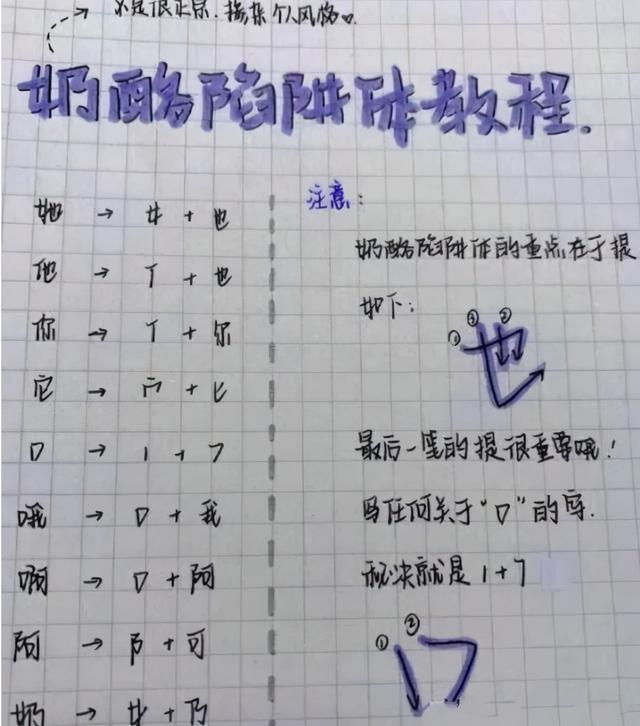 不是很正宗.掺杂个人风格
奶酪陷阱体教程.
她 → 女 + 也
他 → 亻 + 也
你 → 亻 + 尔
它 → 宀 + 匕
口 → 1 + 7
哦 → 口 + 我
啊 → 口 + 阿
阿 → 阝 + 可
奶 → 女 + 乃
注意:
奶酪陷阱体的重点在于提
如下:
① ③ ②
也
最后一笔的提很重要哦!
写任何关于“口”的字.
秘诀就是 1 + 7
① ②